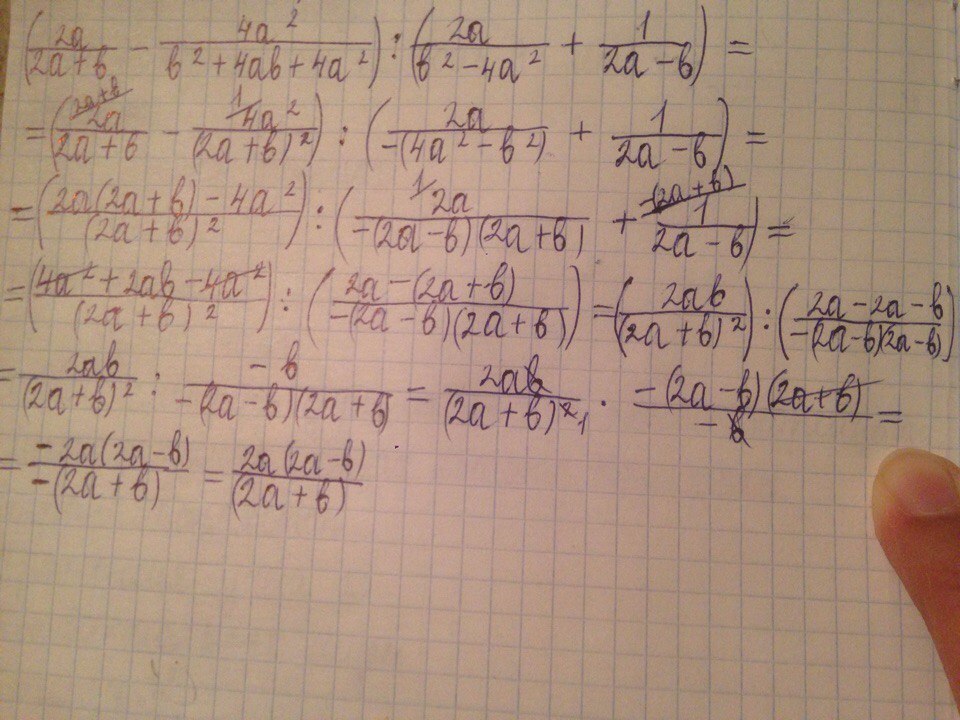 (2a/(2a+b) − 4a²/(b²+4ab+4a²)) : (2a/(b²−4a²) + 1/(2a−b)) =
= (2a/(2a+b) ^(2a+b) − 4a²/(2a+b)² ^1) : (2a/(−(4a²−b²)) + 1/(2a−b)) =
= ((2a(2a+b)−4a²)/(2a+b)²) : (2a/(−(2a−b)(2a+b)) ^1 + 1/(2a−b) ^(−(2a+b))) =
= ((4a²+2ab−4a²)/(2a+b)²) : ((2a−(2a+b))/(−(2a−b)(2a+b))) = (2ab/(2a+b)²) : ((2a−2a−b)/(−(2a−b)(2a−b)))
= 2ab/(2a+b)² : −b/(−(2a−b)(2a+b)) = 2ab/(2a+b)² 1 · −(2a−b)(2a+b)/(−b) =
= −2a(2a−b)/(−(2a+b)) = 2a(2a−b)/(2a+b)